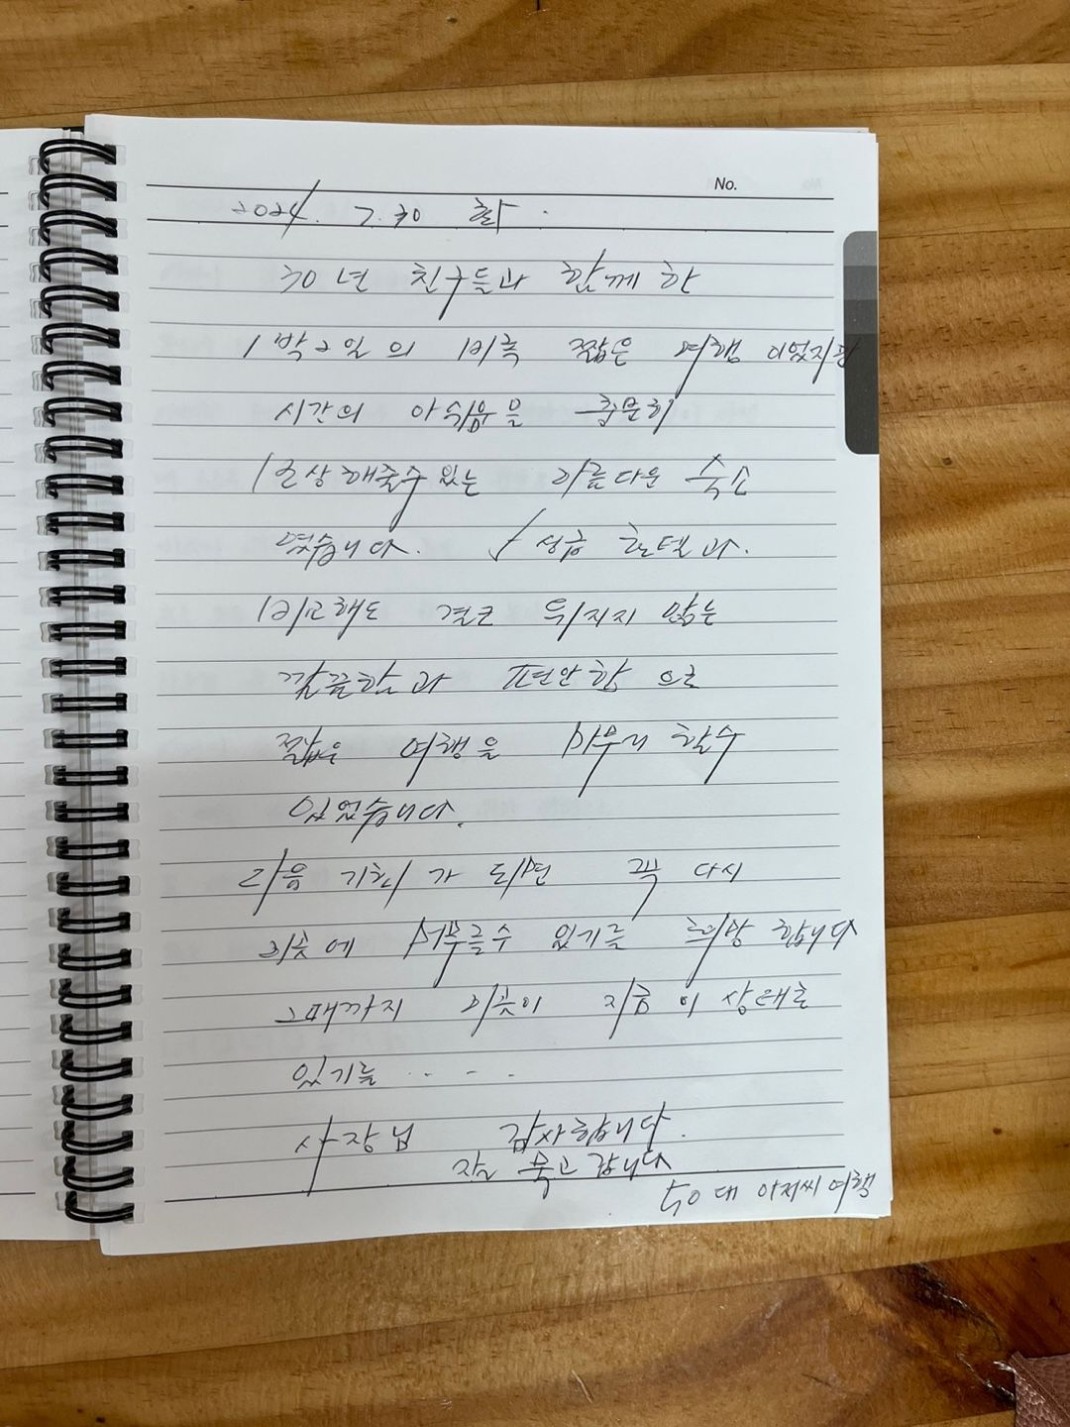 No.
2024. 7. 30 화.
30년 친구들과 함께 한
1박2일의 비록 짧은 여행 이었지만
시간의 아쉬움을 충분히
보상해줄수 있는 아름다운 숙소
였습니다. 5성급 호텔과.
비교해도 결코 뒤지지 않는
깔끔함과 편안함 으로
짧은 여행을 마무리 할수
있었습니다.
다음 기회가 되면 꼭 다시
이곳에 머무를수 있기를 희망 합니다
그때까지 이곳이 지금 이 상태로
있기를 ....
사장님 감사합니다.
잘 묵고 갑니다
50대 아저씨 여행